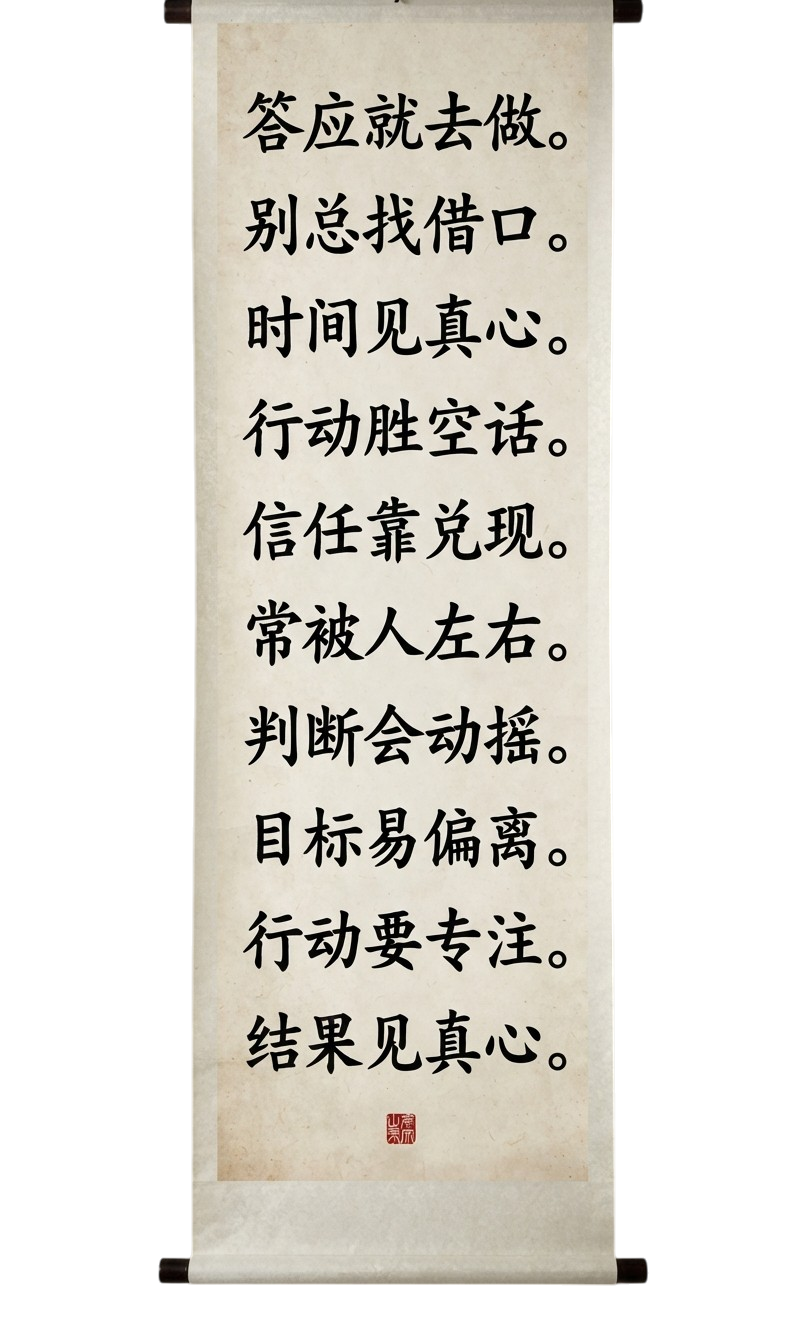 答应就去做。
别总找借口。
时间见真心。
行动胜空话。
信任靠兑现。
常被人左右。
判断会动摇。
目标易偏离。
行动要专注。
结果见真心。